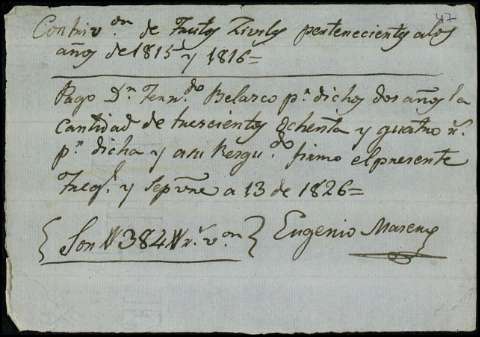 47
Contriv.on de frutos Zivils pertenecients a los
años de 1815 y 1816=
Pago Dn. Fern.do Belasco pr. dichos dos años la
cantidad de trescientos ochenta y quatro rs.
pr. dicha y a su Resgu.do firmo el presente
y Sepvre a 13 de 1826=
Son # 384 # rs. von. Eugenio